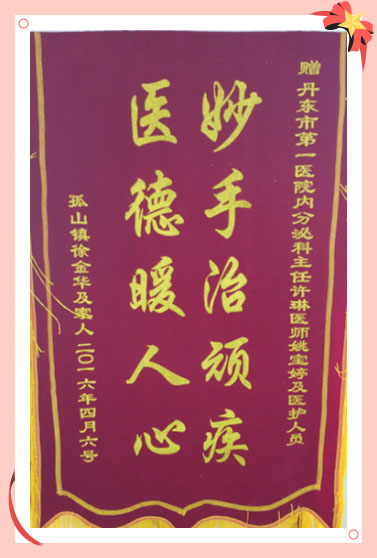 赠 丹东市第一医院内分泌科主任许琳医师姚宝婷及医护人员
妙手治顽疾
医德暖人心
孤山镇徐金华及家人 二〇一六年四月六号